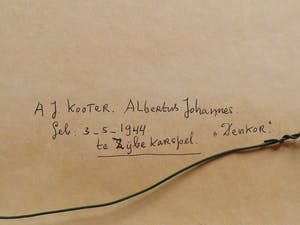 A J. KOOTER. Albertus Johannes.
geb. 3-5-1944 „Denkor."
te Zijbekarspel.